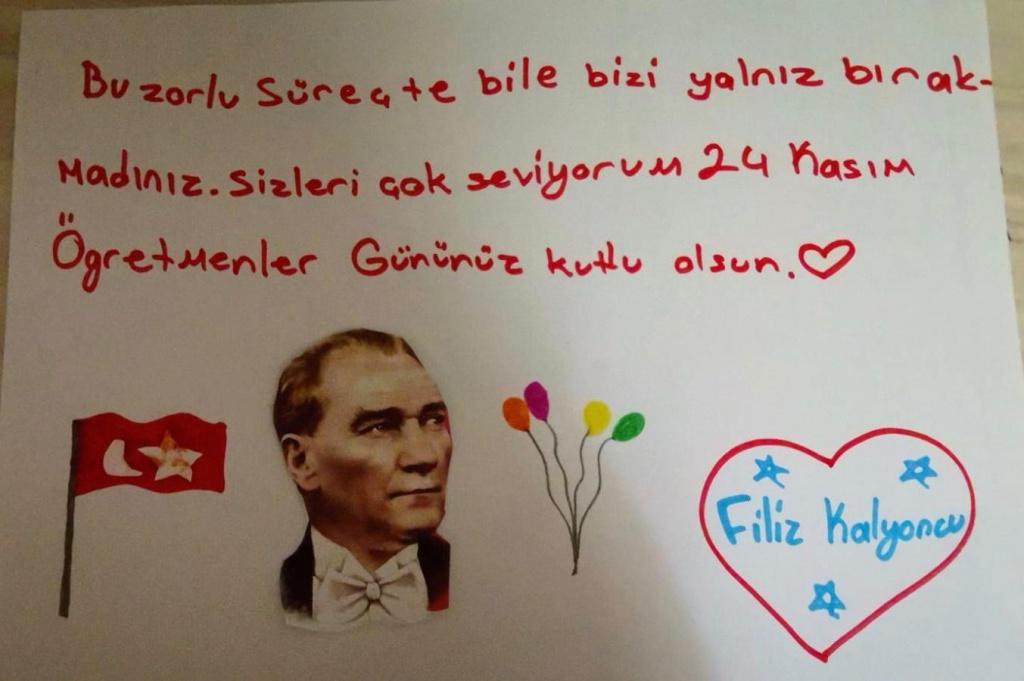 Bu zorlu süreçte bile bizi yalnız bırak-
madınız. Sizleri çok seviyorum 24 Kasım
Ögretmenler Gününüz kutlu olsun.
Filiz Kalyoncu